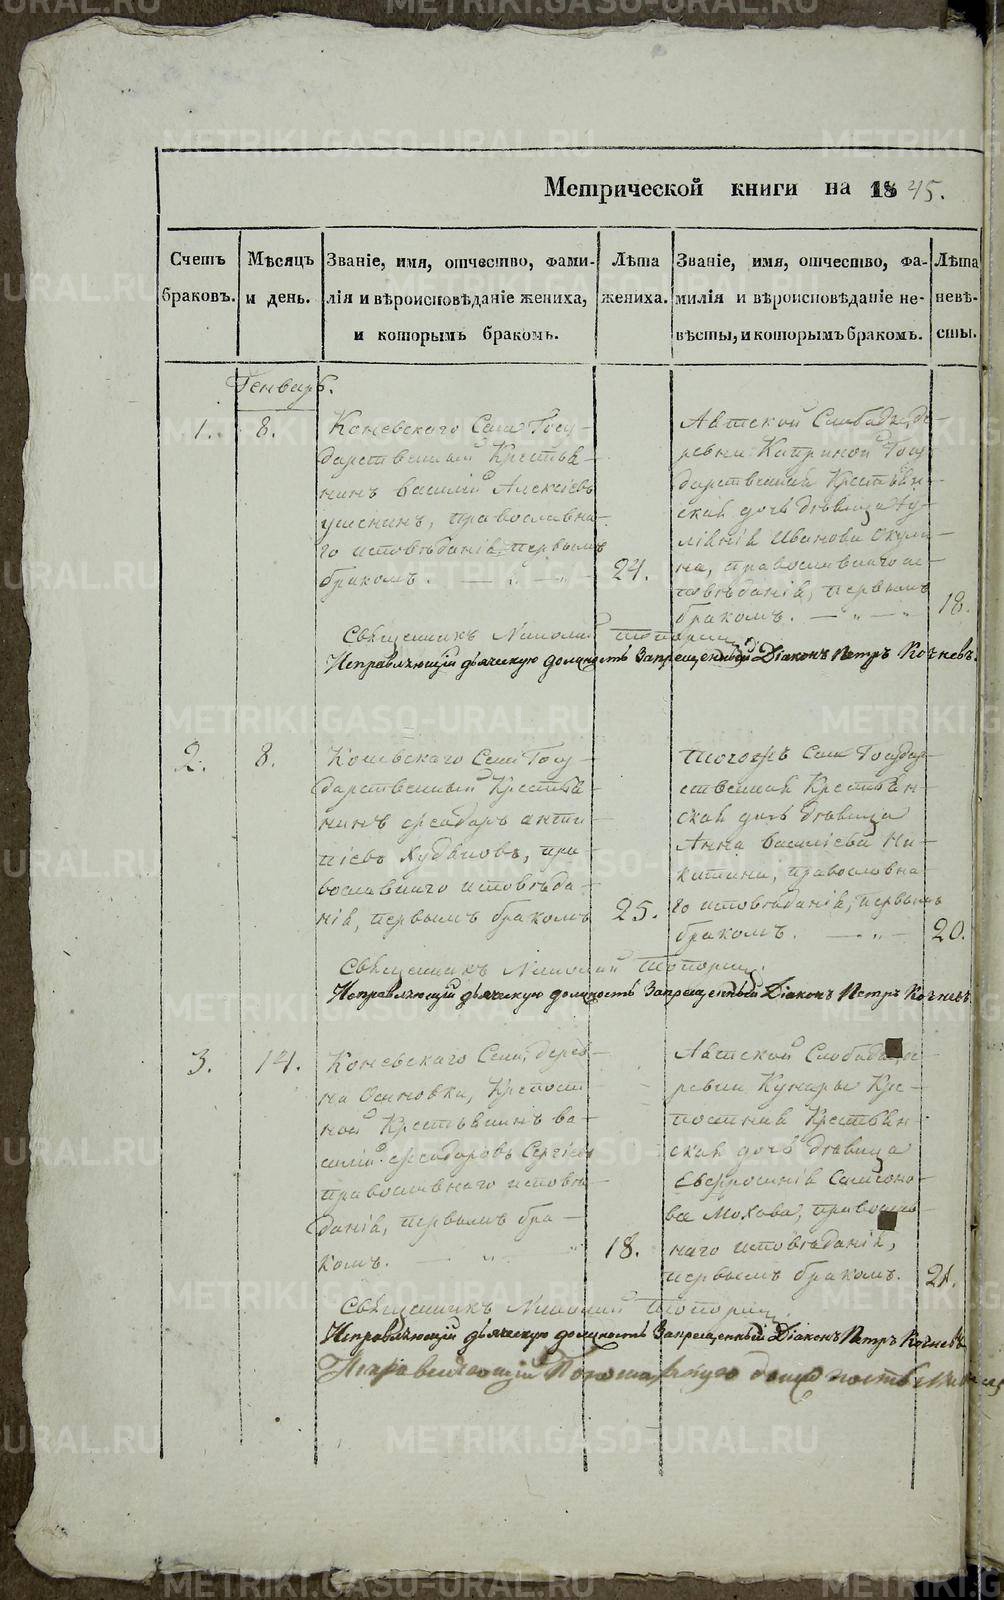 Метрической книги на 1845.
Счетъ браковъ.
Мѣсяцъ и день.
Званіе, имя, отчество, фами-
лія и вѣроисповѣданіе жениха,
и которымъ бракомъ.
Лѣта жениха.
Званіе, имя, отчество, фа-
милія и вѣроисповѣданіе не-
вѣсты, и которымъ бракомъ.
Лѣта невѣ-
сты.
Генварь.
1.
8.
Коневскаго Села Госу-
дарственный Крестья-
нинъ Василій Алексіевъ
православна-
го исповѣданія, первымъ
бракомъ.
24.
Аятской Слободы, де-
ревни Каприной Госу-
дарственная Крестьян-
ская дочь дѣвица Іу-
ліанія Иванова Окули-
на, православнаго ис-
повѣданія, первымъ
бракомъ.
18.
Священникъ Николай Топорищ
Исправляющій дьяческую должность Запрещенный Діаконъ Петръ Кочневъ.
2.
8.
Коневскаго Села Госу-
дарственный Крестья-
нинъ Феодоръ Анти-
піевъ Худяковъ, пра-
вославнаго исповѣда-
нія, первымъ бракомъ
25.
Тогожъ Села Государ-
ственная Крестьян-
ская дочь дѣвица
Анна Василіева Ни-
китина, православна-
го исповѣданія, первымъ
бракомъ.
20.
Священникъ Николай Топорищ
Исправляющій дьяческую должность Запрещенный Діаконъ Петръ Кочневъ
3.
14.
Коневскаго Села, дерев-
ни Осиновки, Крепост-
ной Крестьянинъ Ва-
силій Феодоровъ Сергіевъ
православнаго исповѣ-
данія, первымъ бра-
комъ.
18.
Аятской Слободы,
ревни Кунары Кре-
постная Крестьян-
ская дочь дѣвица
Евфросинія Самсоно-
ва Мохова, православ-
наго исповѣданія,
первымъ бракомъ.
21.
Священникъ Николай Топорищ
Исправляющій дьяческую должность Запрещенный Діаконъ Петръ Кочневъ
Исправляющій Пономарскую должность
METRIKI.GASO-URAL.RU